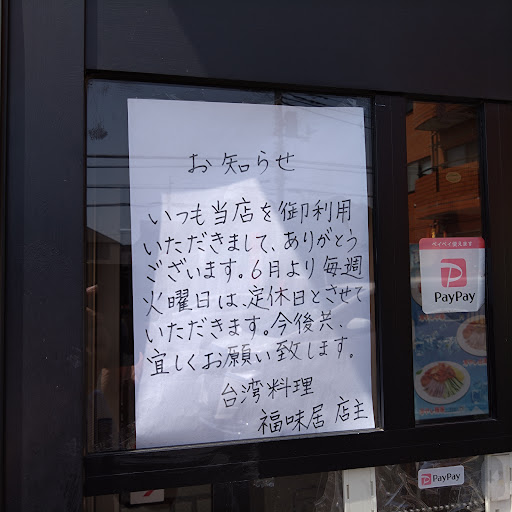 お知らせ
いつも当店を御利用
いただきまして、ありがとう
ございます。6月より毎週
火曜日は、定休日とさせて
いただきます。今後共、
宜しくお願い致します。
台湾料理
福味居 店主
ペイペイ使えます
PayPay
PayPay